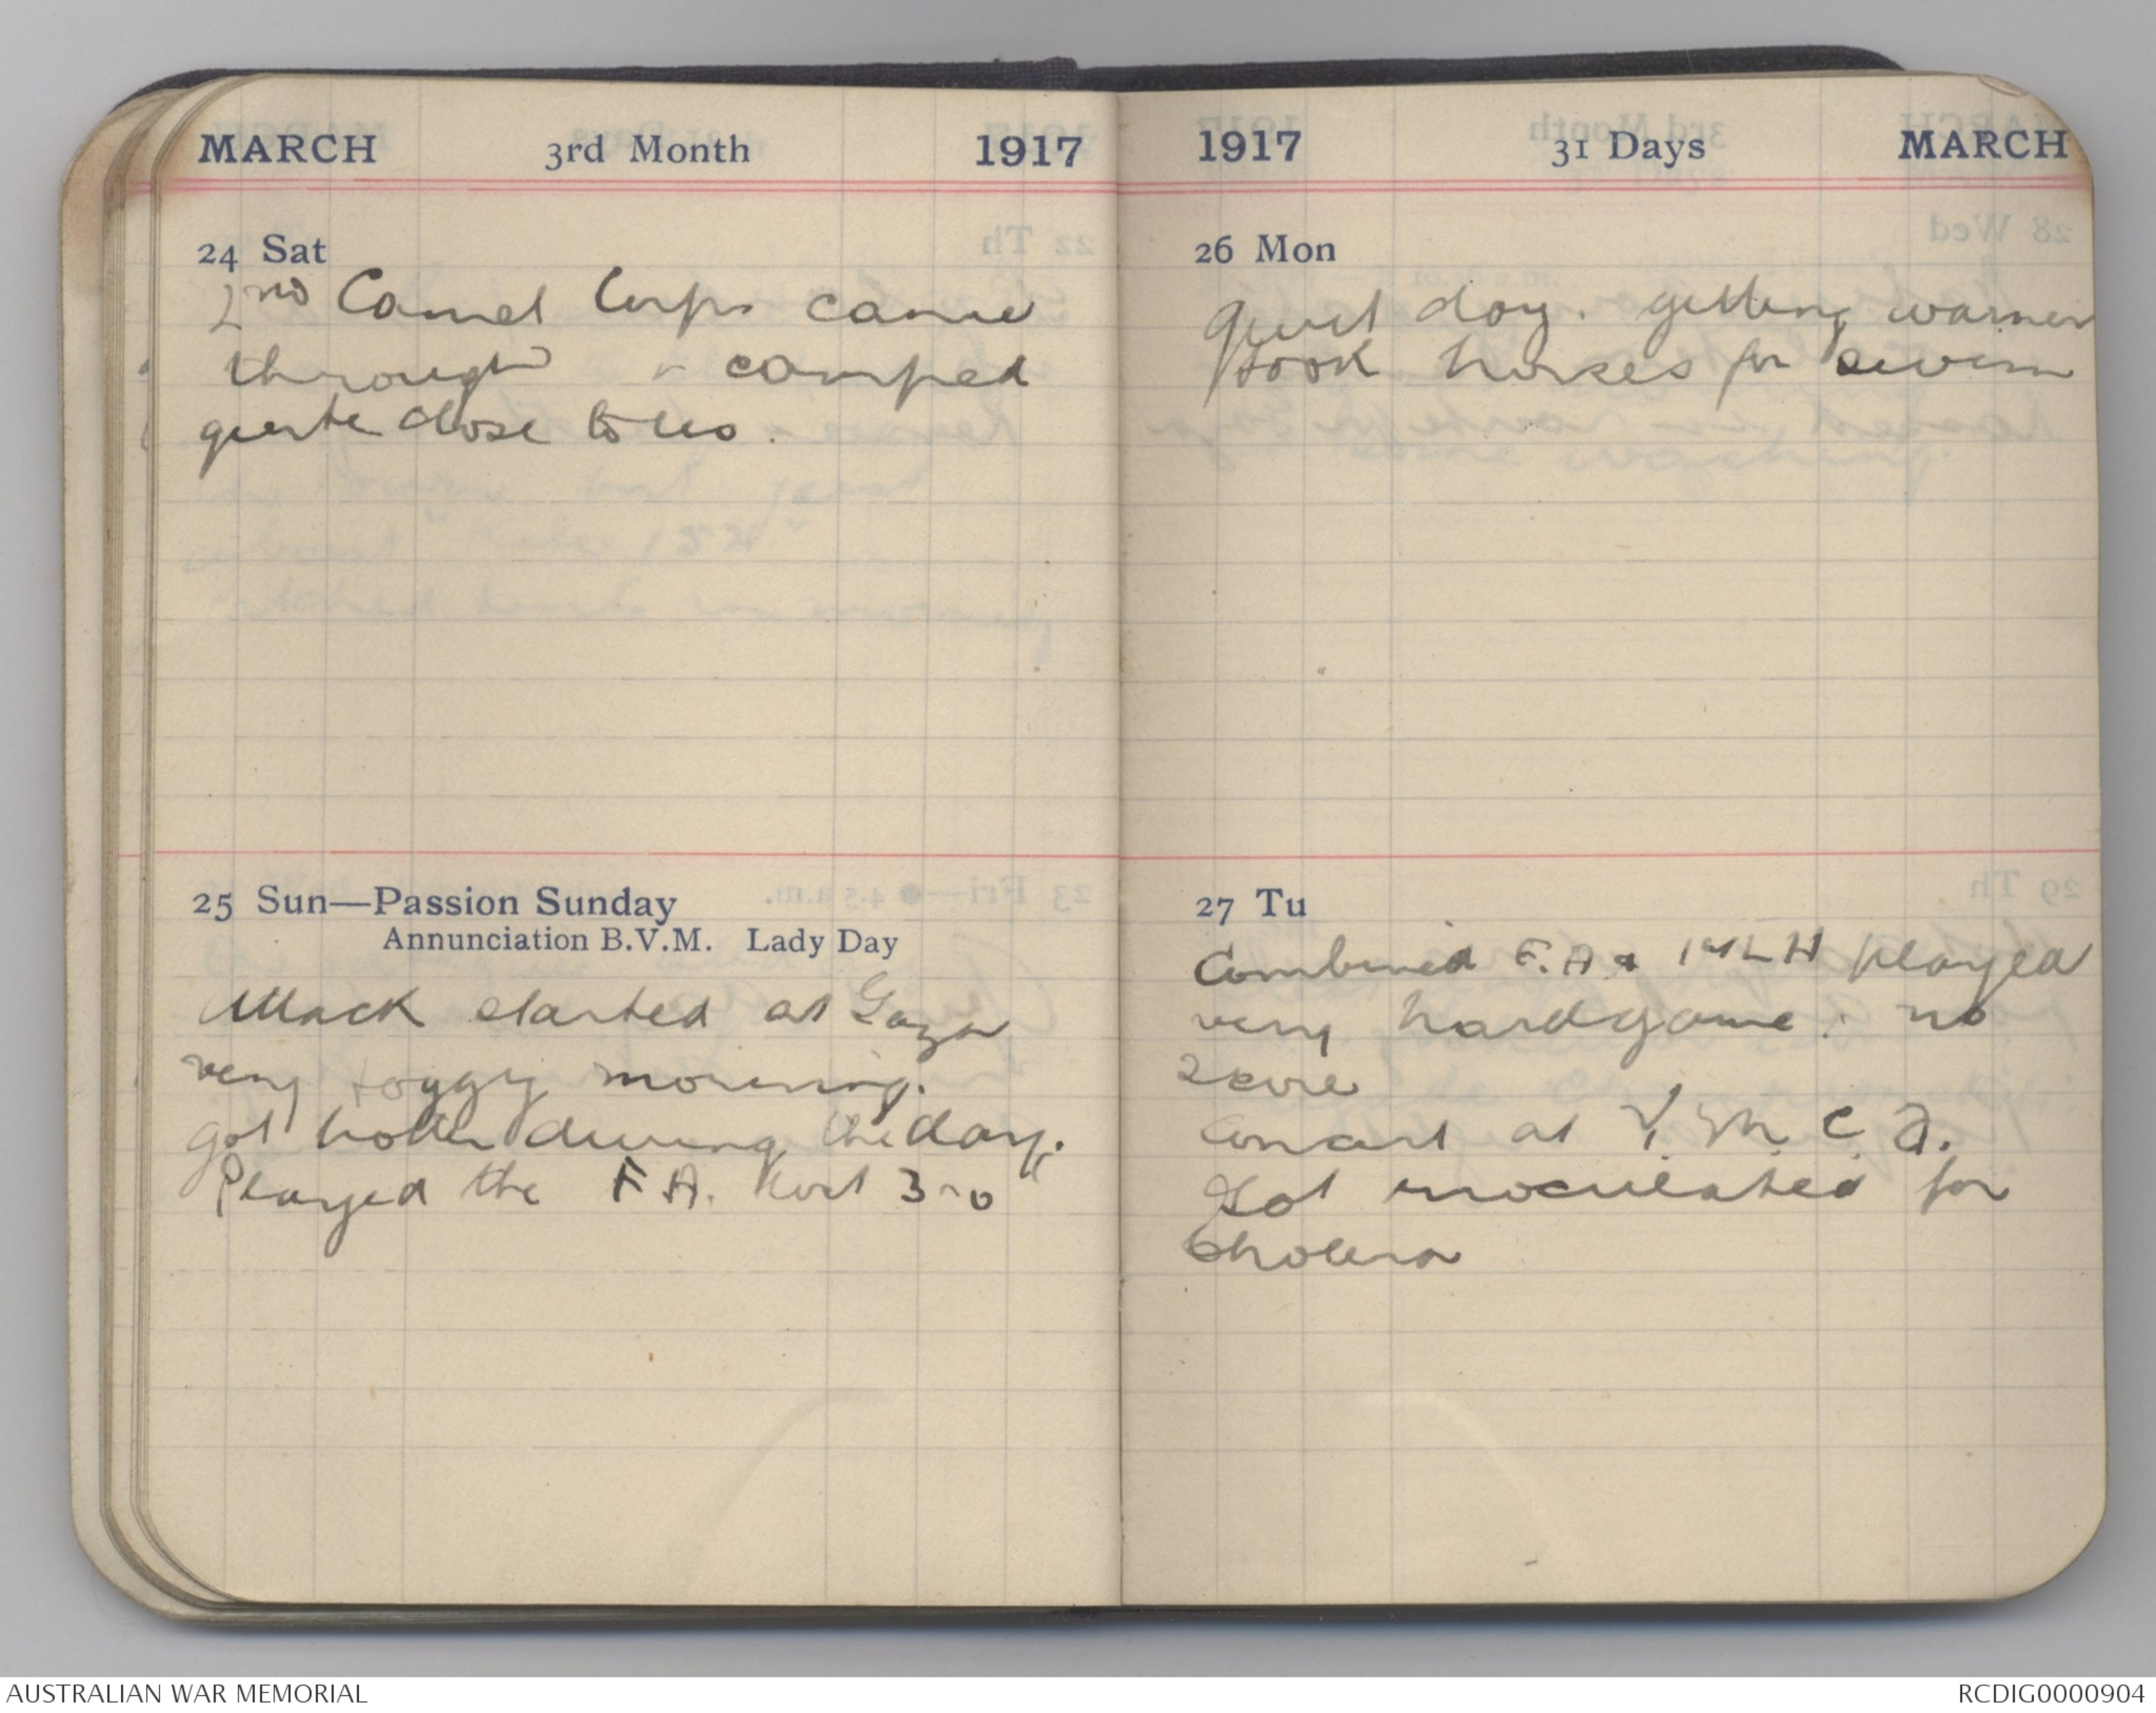 MARCH 3rd Month 1917
24 Sat
2nd Camel Corps came
through & camped
quite close to us.
25 Sun—Passion Sunday
Annunciation B.V.M. Lady Day
Attack started at Gaza
very foggy morning.
got hotter during the day.
Played the F.A. lost 3-0
1917 31 Days MARCH
26 Mon
Quiet day. getting warmer
took horses for swim
27 Tu
Combined F.A & 1st LH played
very hard game. no
score
Concert at Y.M.C.A.
Got inoculated for
Cholera
AUSTRALIAN WAR MEMORIAL
RCDIG0000904